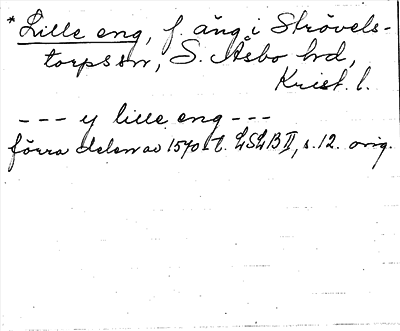 * Lille eng, f. äng i Strövels-
torps sn, S. Åsbo hd,
Krist. l.
--- y lille eng ---
förra delen av 1570-t. LSLB II, s. 12. orig.